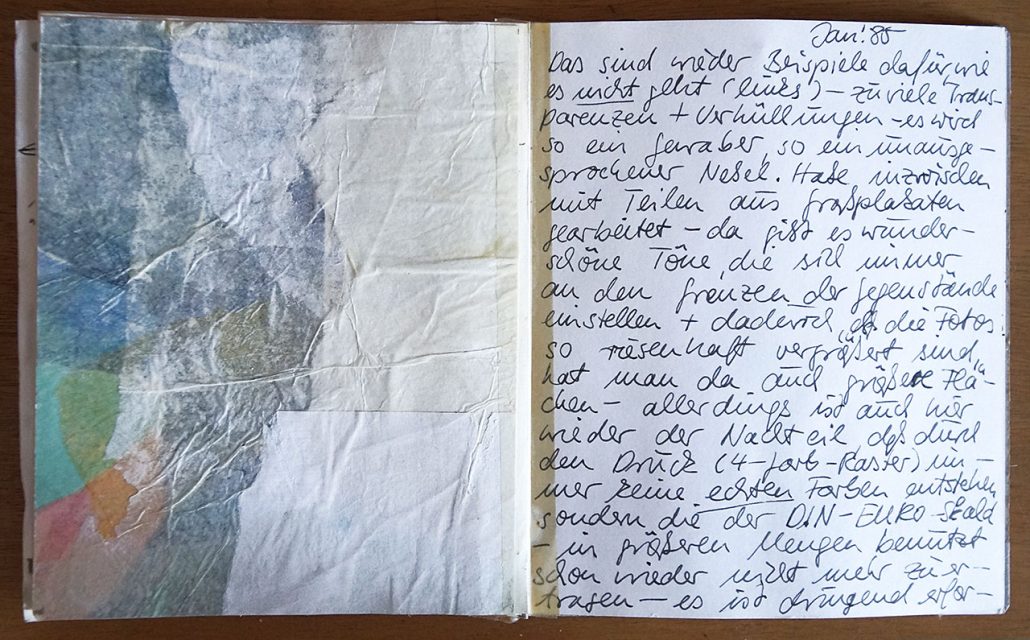 Jan! 85
Das sind wieder Beispiele dafür, wie
es nicht geht (links) – zuviele Trans-
parenzen + Verhüllungen – es wird
so ein so ein unausge-
sprochener Nebel. Habe inzwischen
mit Teilen aus Großplakaten
gearbeitet – da gibt es wunder-
schöne Töne, die sich immer
an den Grenzen der Gegenstände
einstellen + dadurch, daß die Fotos
so riesenhaft vergrößert sind,
hat man da auch größere Flä-
chen – allerdings ist auch hier
wieder der Nachteil daß durch
den Druck (4-farb-Raster) im-
mer keine echten Farben entstehen
sondern die der DIN-EURO-Skala
– in größeren Mengen benutzt
schon wieder nicht mehr zu er-
tragen – es ist dringend erfor-